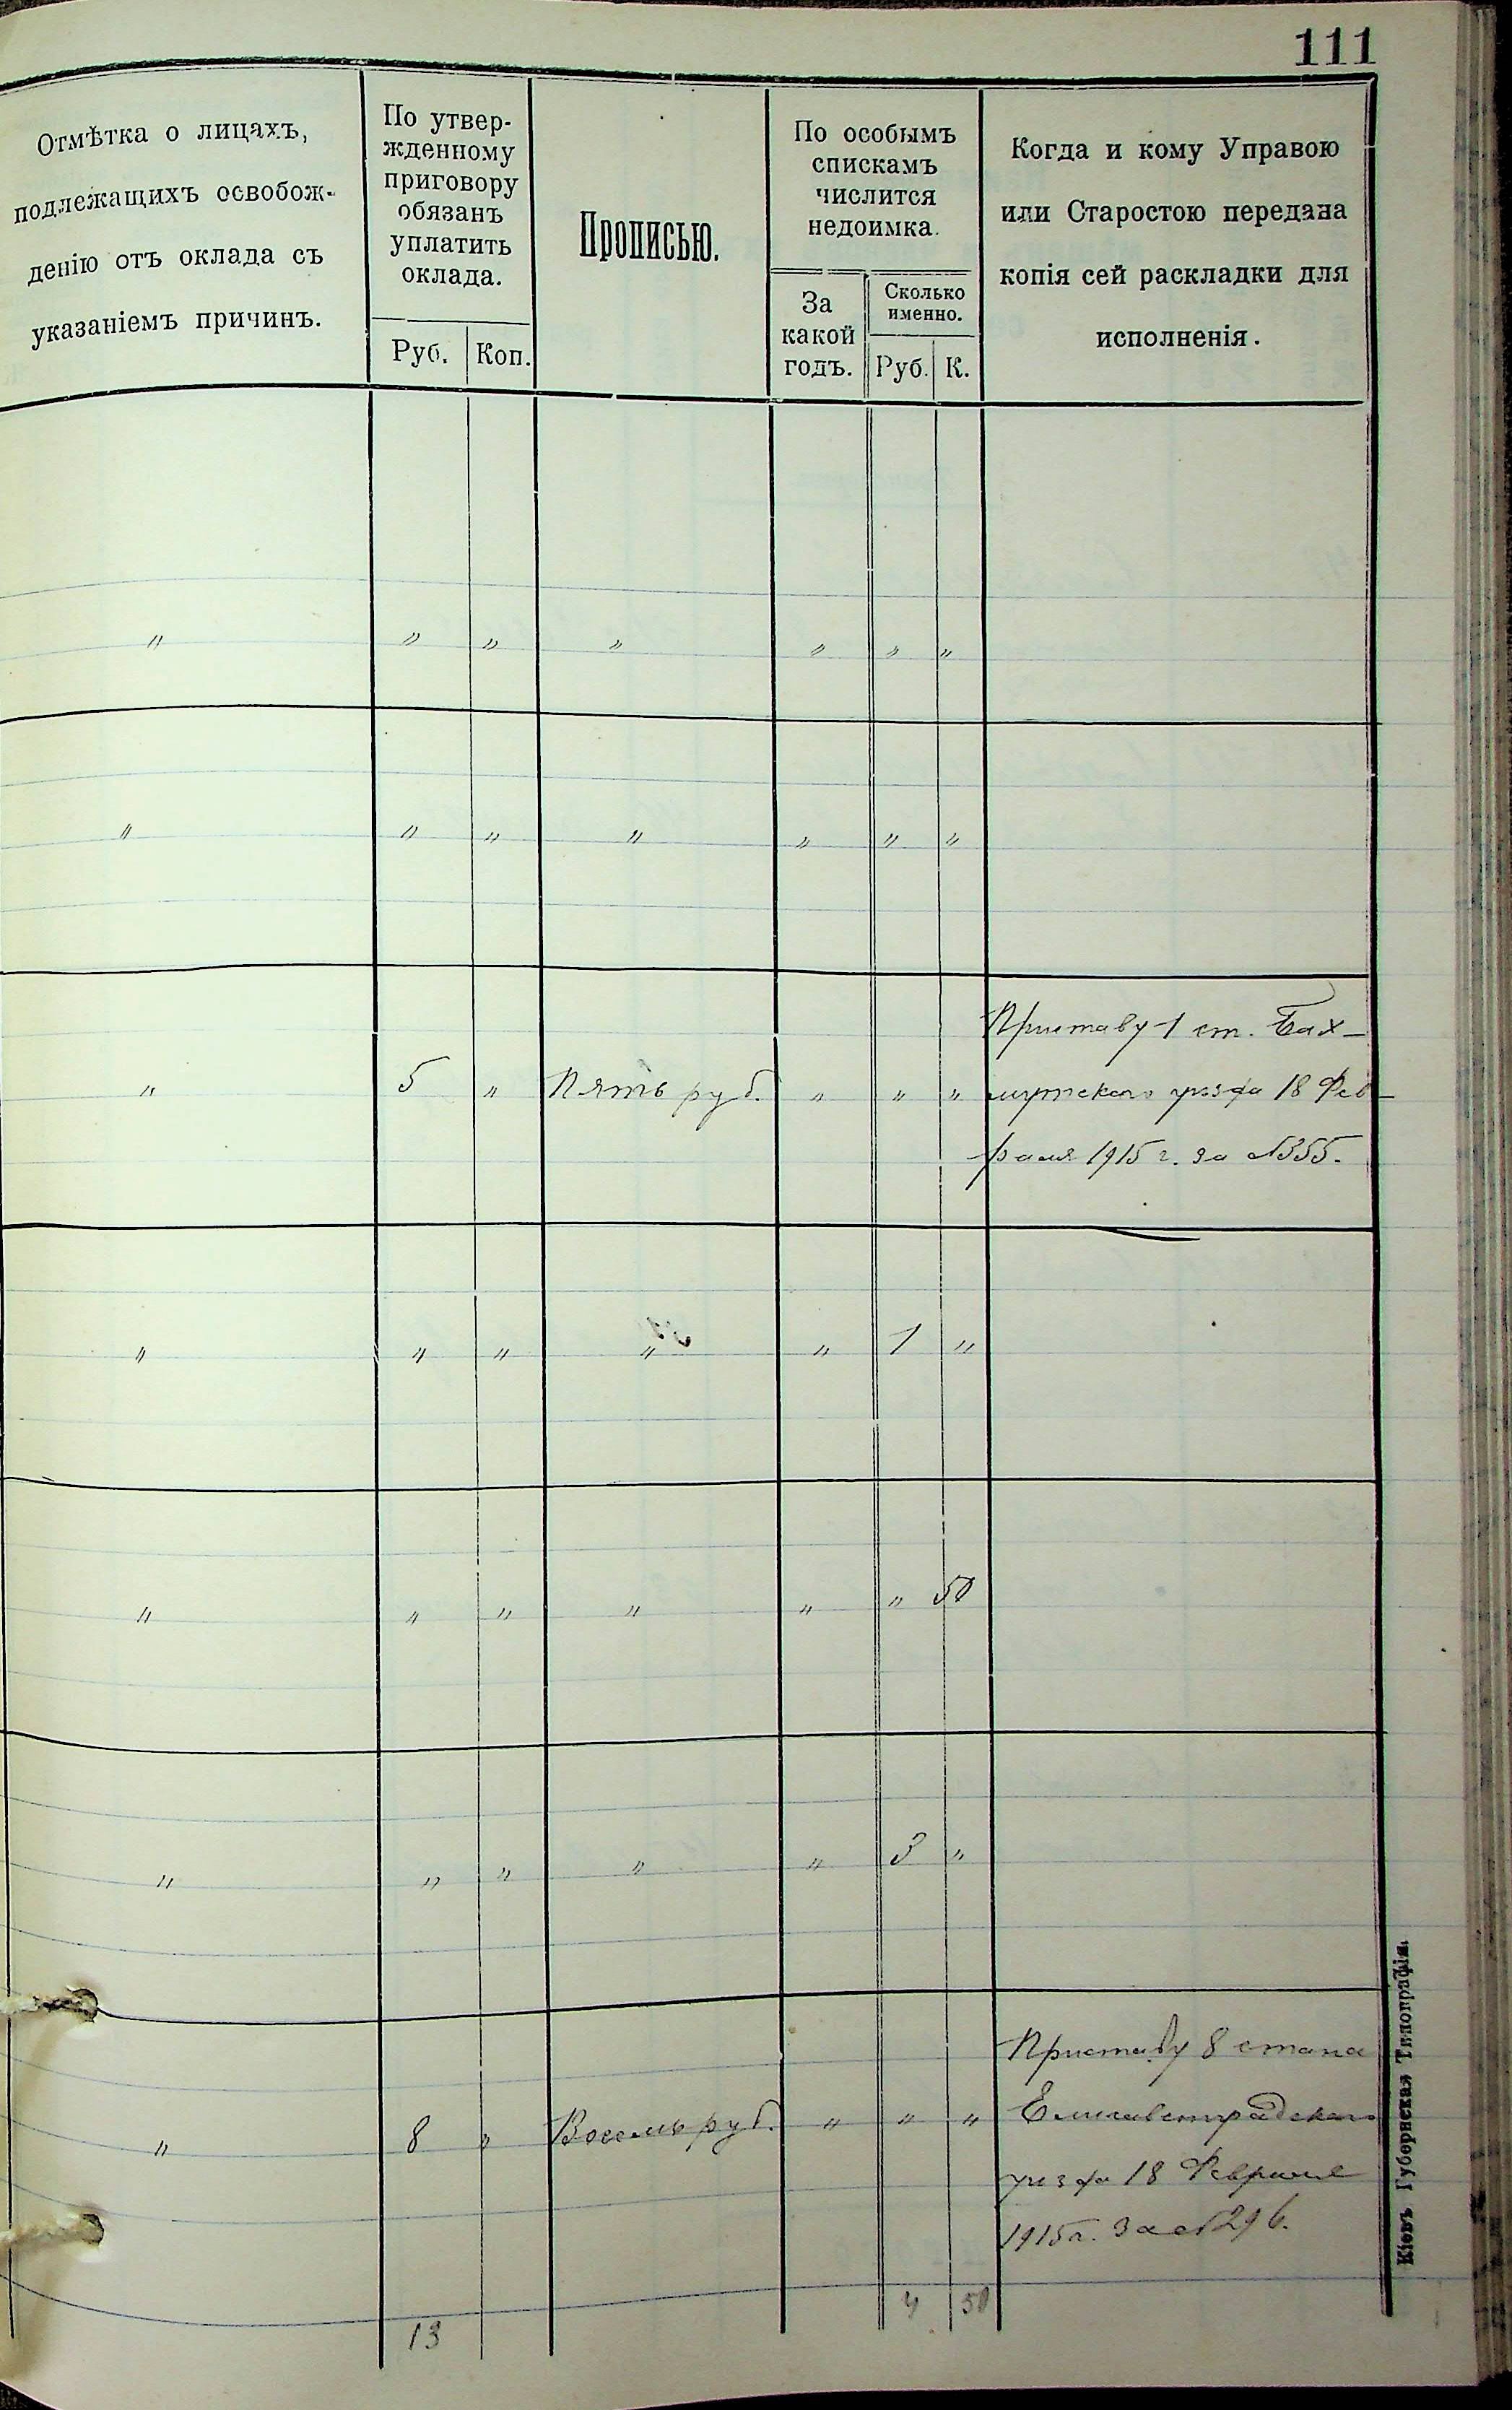 111
Отмѣтка о лицахъ,
подлежащихъ освобож-
денію отъ оклада съ
указаніемъ причинъ.
По утвер-
жденному
приговору
обязанъ
уплатить
оклада.
Руб. Коп.
Прописью.
По особымъ
спискамъ
числится
недоимка.
За
какой
годъ.
Сколько
именно.
Руб. К.
Когда и кому Управою
или Старостою передана
копія сей раскладки для
исполненія.
" " " " " " "
" " " " " " "
" 5 " Пять руб. " " "
Приставу 1 ст. Бах-
мутскаго уѣзда 18 Фев-
раля 1915 г. за №355.
" " " " " 1 "
" " " " " " 50
" " " " " 3 "
" 8 " Восемь руб. " " "
Приставу 8 стана
Елисаветградскаго
уѣзда 18 Февраля
1915 г. за №296.
13 4 50
Кіевъ Губернская Типографія.